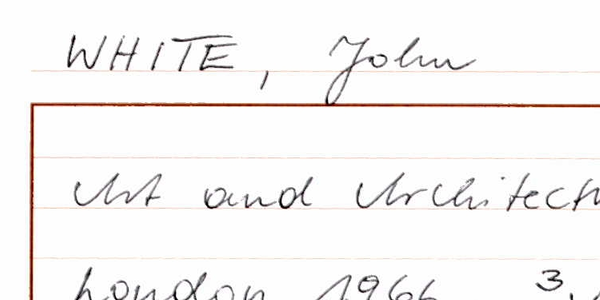 WHITE, John
Art and Architect
London 1966 3.